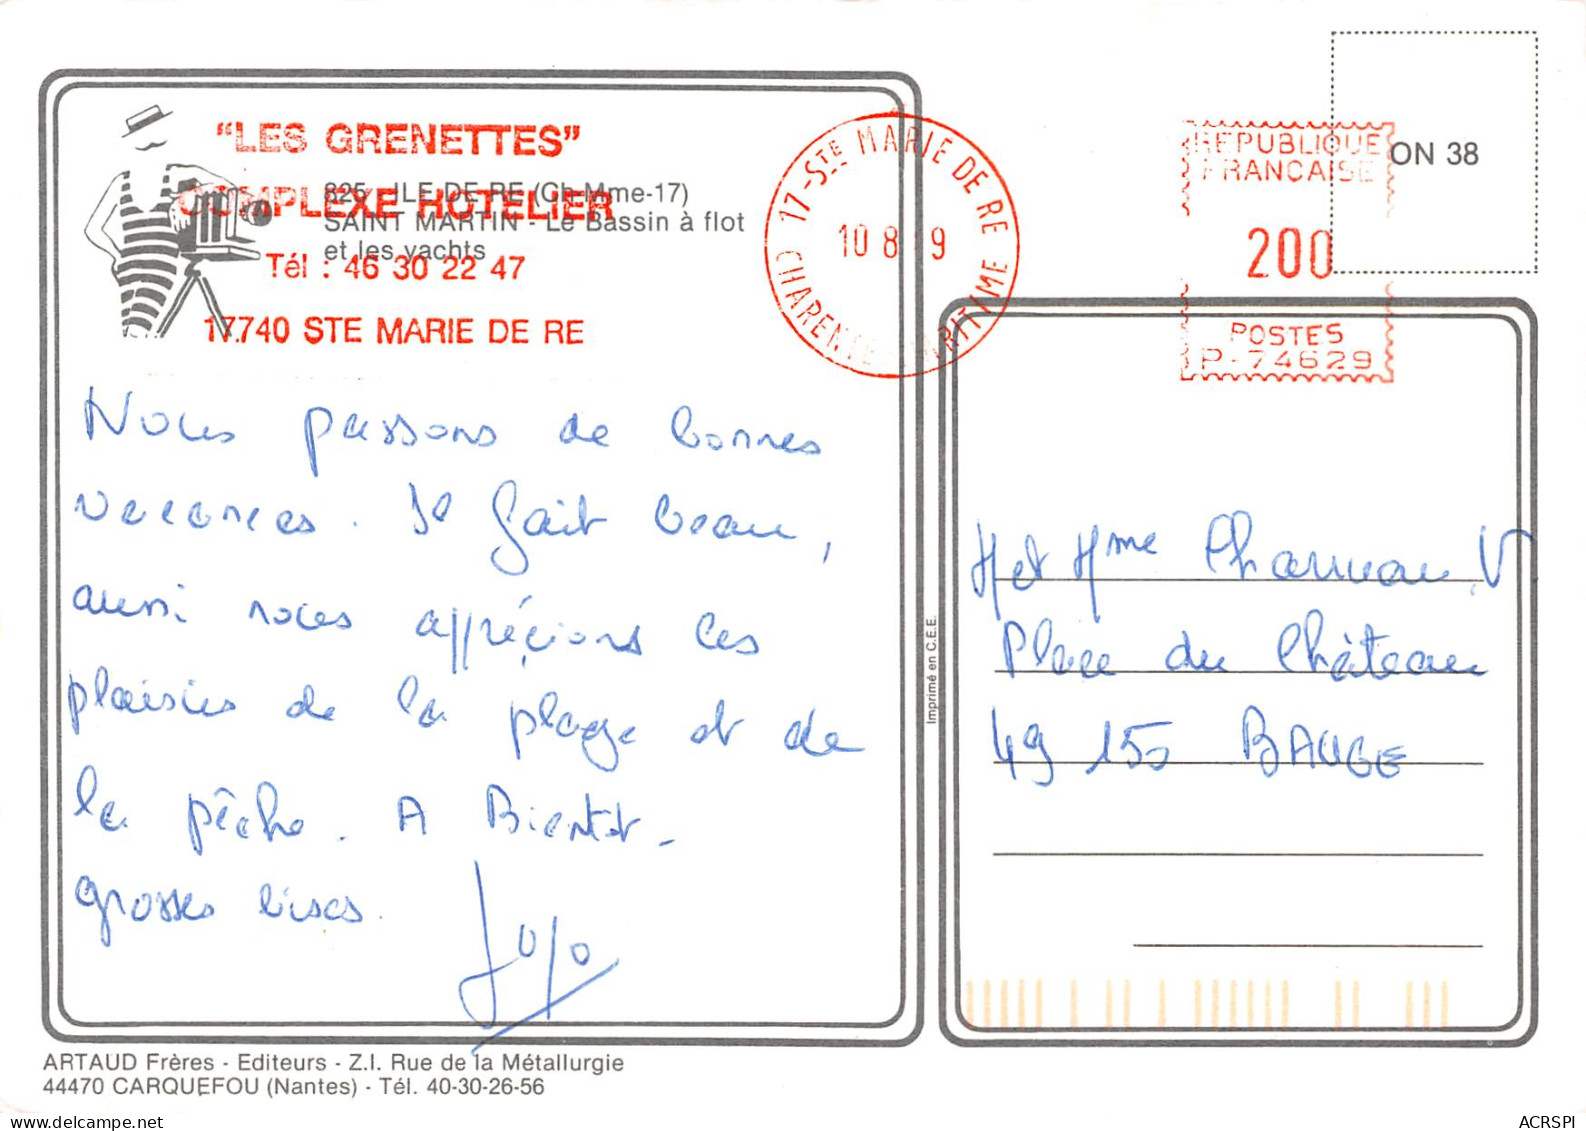 "LES GRENETTES"
COMPLEXE HOTELIER
Tél : 46 30 22 47
17.740 STE MARIE DE RE
825 - ILE DE RE (Ch-Mme-17)
SAINT MARTIN - Le Bassin à flot
et les yachts
17-STE MARIE DE RE
10 8 9
CHARENTE MARITIME
REPUBLIQUE
FRANCAISE
200
POSTES
P-74629
ON 38
Nous passons de bonnes
vacances. Il fait beau,
aussi nous apprécions les
plaisirs de la plage et de
la pêche. A Bientôt -
grosses bises.
Jojo
M et Mme
Place du Château
49 150 BAUGE
Imprimé en C.E.E.
ARTAUD Frères - Editeurs - Z.I. Rue de la Métallurgie
44470 CARQUEFOU (Nantes) - Tél. 40-30-26-56
ACRSPI